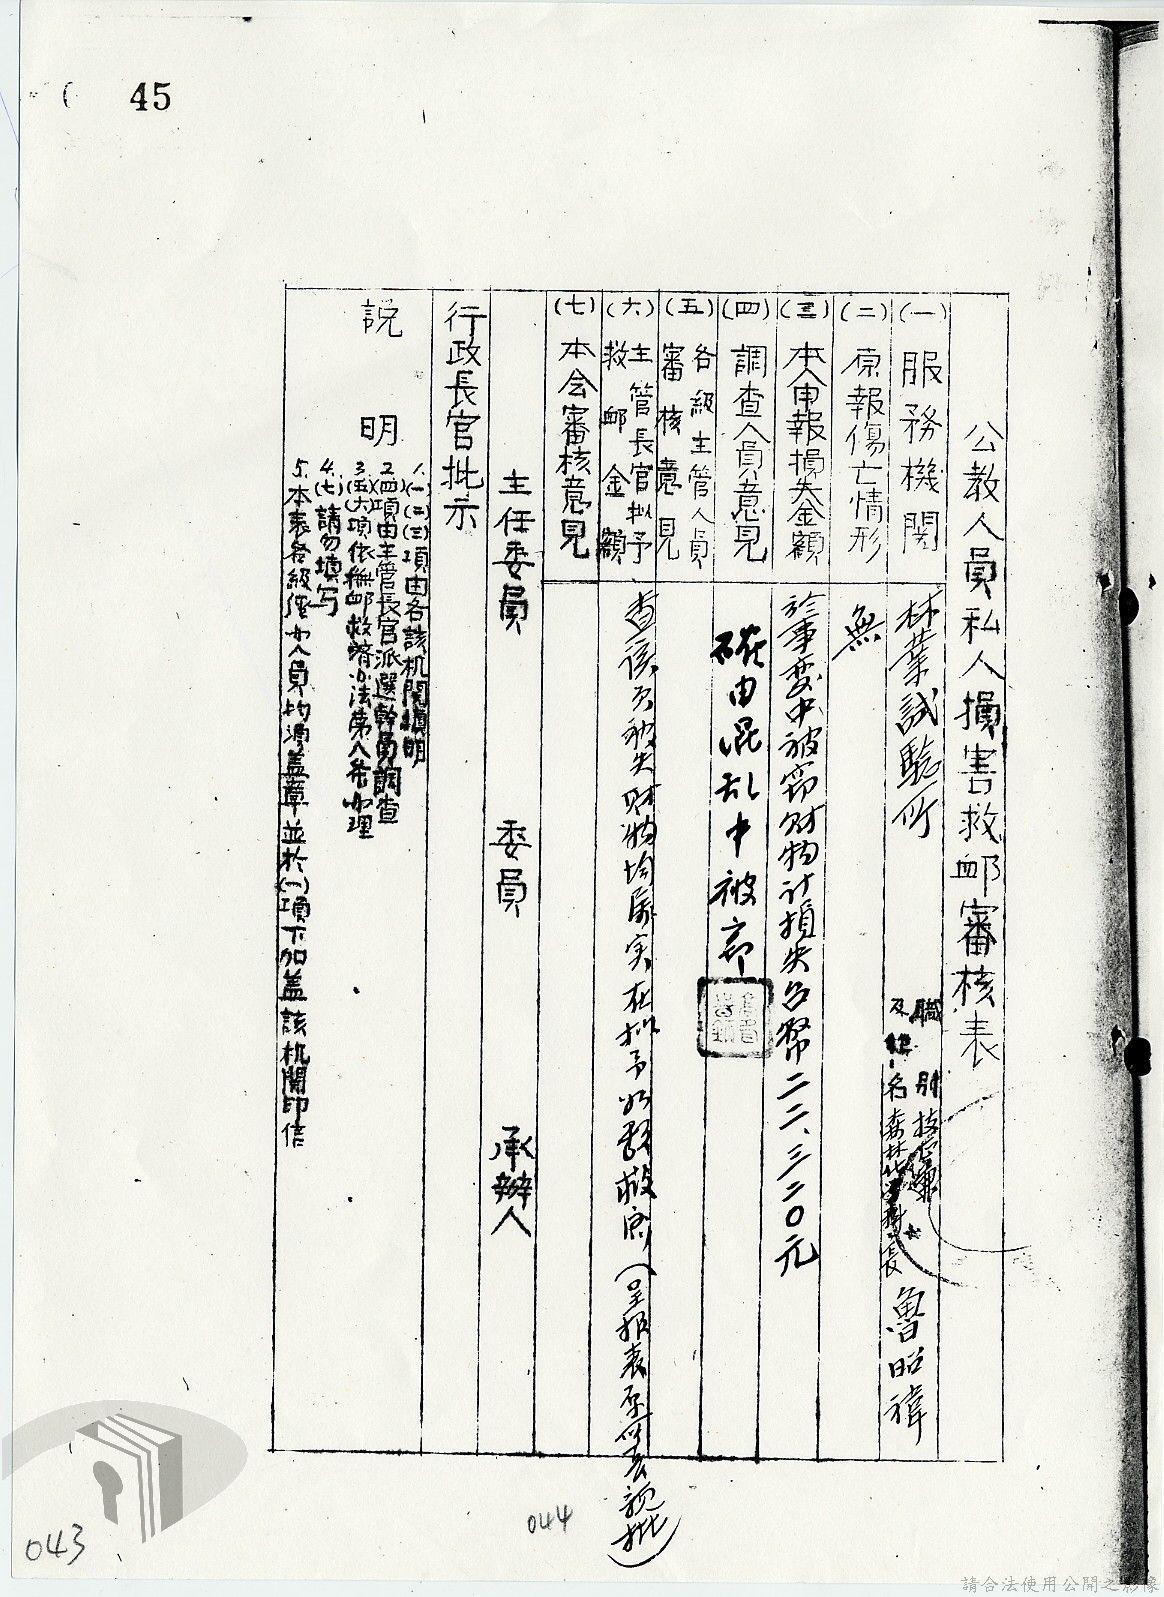 45
公教人員私人損害救卹審核表
(一)服務機関
林業試驗所
職別
及姓名
技正兼
森林化学科長
魯昭禕
(二)原報傷亡情形
無
(三)本人申報損失金額
於事變中被竊財物計損失台幣二二、三二〇元
(四)調查人員意見
確由混乱中被竊
(五)各級主管人員
審核意見
(六)主管長官拟予
救卹金額
查該員被失財物均屬实在拟予
(七)本会審核意見
主任委員 委員 承辦人
行政長官批示
說明
1.(一)(二)(三)項由各該机関填明
2.(四)項由主管長官派選幹員調查
3.(五)(六)項依撫卹救濟办法第八条办理
4.(七)請勿填写
5.本表各級經办人員均須盖章並於(一)項下加盖該机関印信
043
044
請合法使用公開之影像